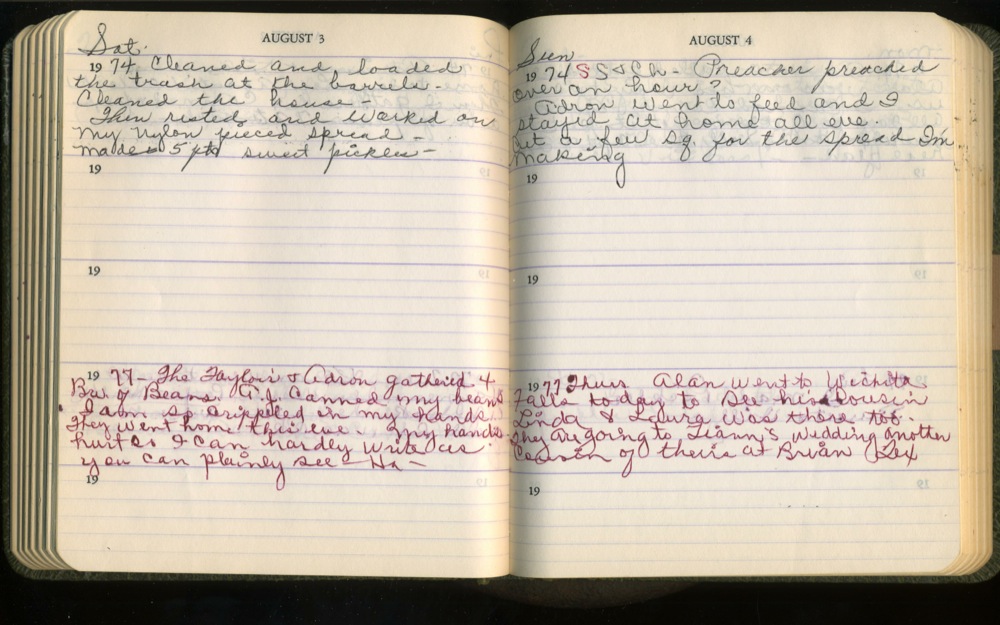 AUGUST 3
Sat.
1974 Cleaned and loaded
the trash at the barrels.
Cleaned the house -
Then rested and worked on
my nylon pieced spread -
made 5 pts sweet pickles -
19
19
1977 - The Taylors & Adron gathered 4
Bu. of Beans. A.J. canned my beans
I am so crippled in my hands.
They went home this eve. My hands
hurt so I can hardly write as
you can plainly see - Ha -
19
AUGUST 4
Sun
1974 SS & Ch - Preacher preached
over an hour?
Adron went to feed and I
stayed at home all eve.
Cut a few sq. for the spread I'm
making
19
19
1977 Thurs Alan went to Wichita
Falls today to see his cousin
Linda & Laura was there too.
They are going to Liann's wedding another
cousin of theirs at Bryan Tex
19